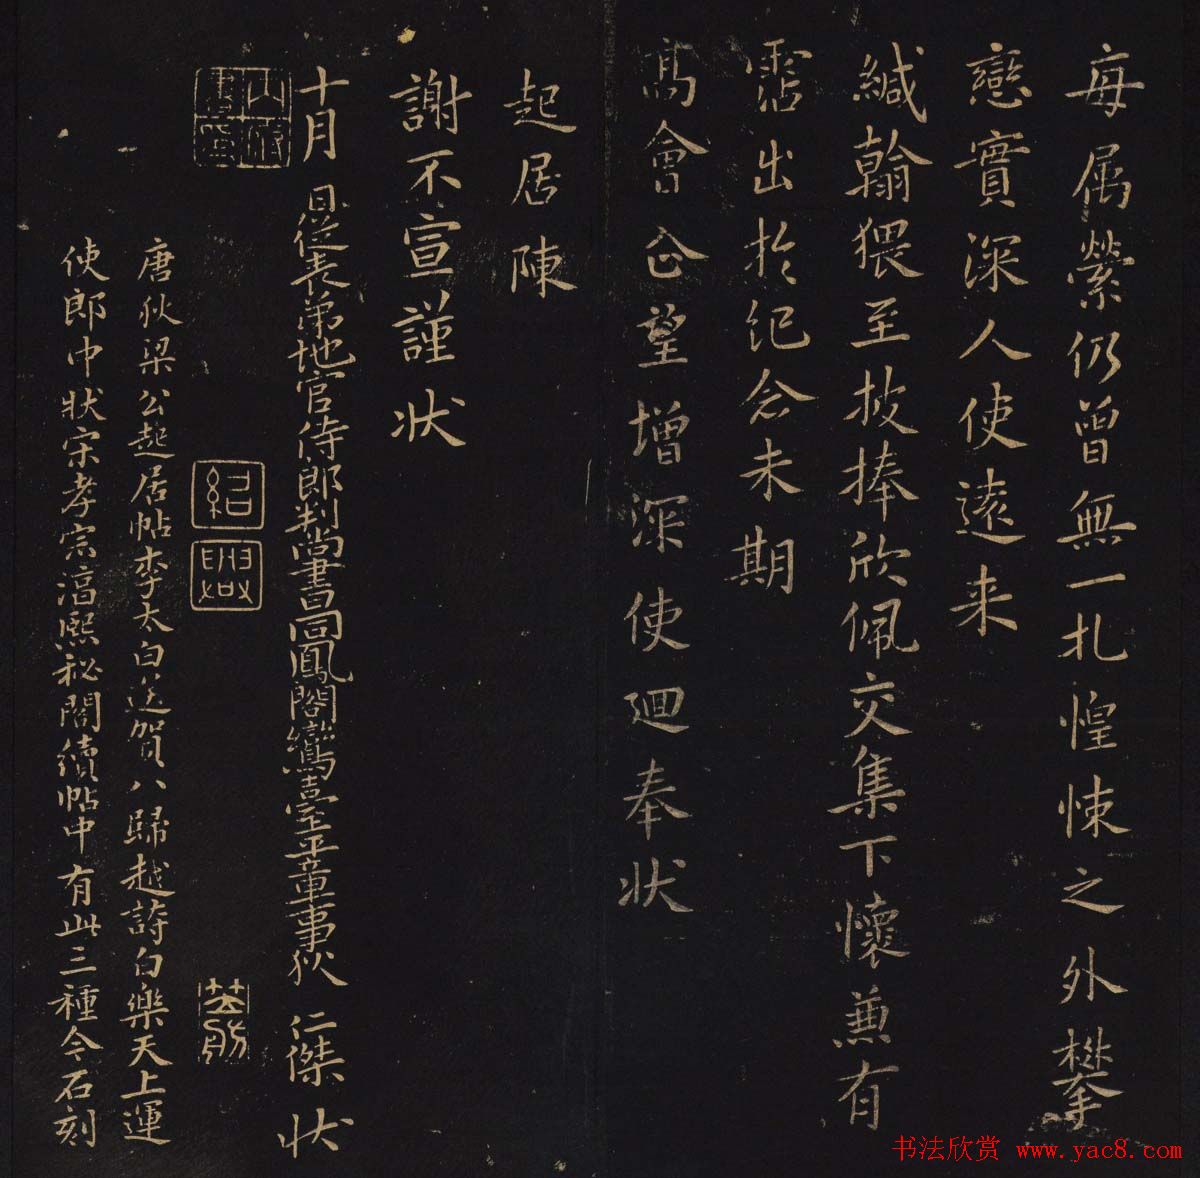 每属縈仍曾無一扎惶悚之外攀
戀實深人使遠来
緘翰猥至披捧欣佩交集下懷兼有
霑出扵紀念未期
髙會企望增深使迴奉状
起居陳
謝不宣謹状
十月 日従表弟地官侍郎判尚書同鳳閣鸞臺平章事狄 仁傑 状
紹興
唐狄梁公起居帖李太白送賀八歸越詩白樂天上運
使郎中状宋孝宗淳熙祕閣續帖中有此三種今石刻
书法欣赏 www.yac8.com